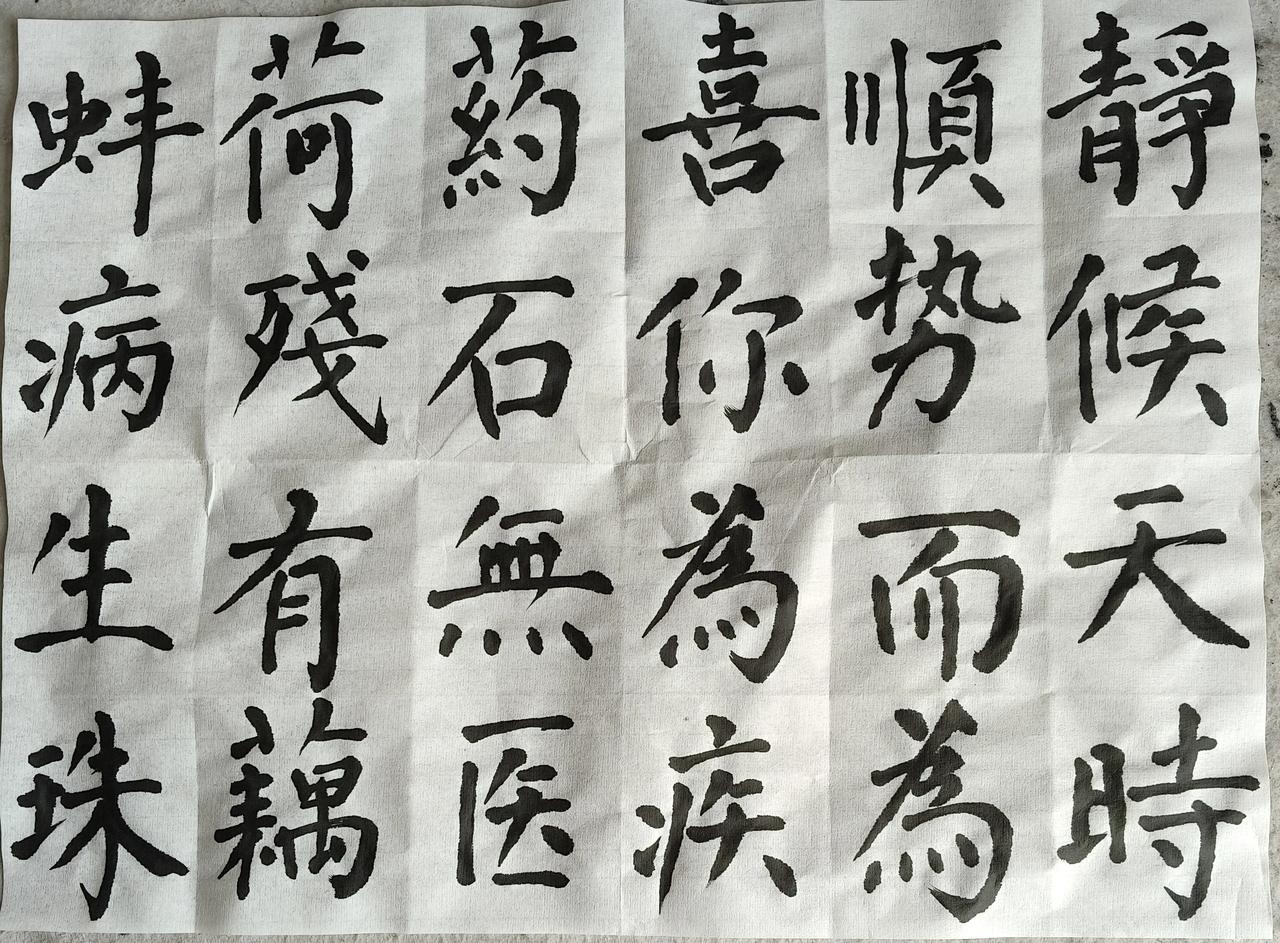 靜候天時
順势而為
喜你為疾
药石無医
荷殘有藕
蚌病生珠